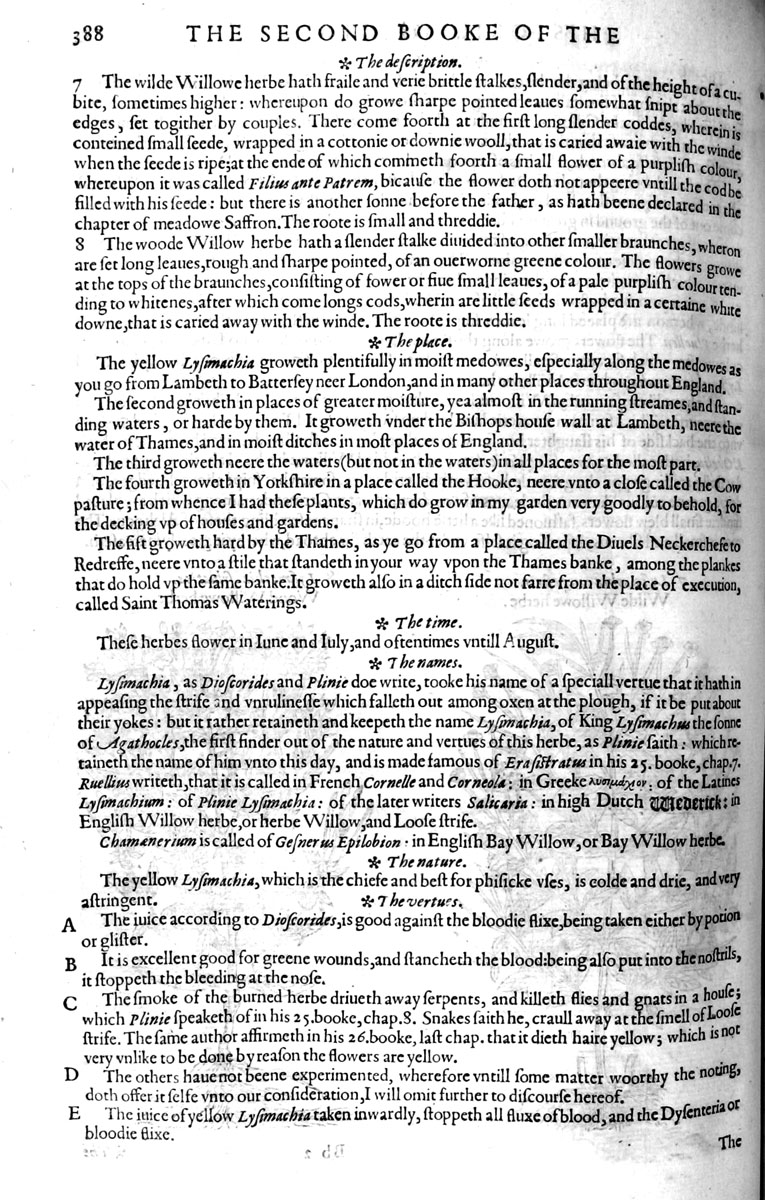 388 THE SECOND BOOKE OF THE
✻ The deſcription.
7 The wilde Willowe herbe hath fraile and verie brittle ſtalkes, ſlender, and of the height of a cu-
bite, ſometimes higher: whereupon do growe ſharpe pointed leaues ſomewhat ſnipt about the
edges, ſet togither by couples. There come foorth at the firſt long ſlender coddes, wherein is
conteined ſmall ſeede, wrapped in a cottonie or downie wooll, that is caried awaie with the winde
when the ſeede is ripe; at the ende of which commeth foorth a ſmall flower of a purpliſh colour,
whereupon it was called Filius ante Patrem, bicauſe the flower doth not appeere vntill the cod be
filled with his ſeede: but there is another ſonne before the father, as hath beene declared in the
chapter of meadowe Saffron. The roote is ſmall and threddie.
8 The woode Willow herbe hath a ſlender ſtalke diuided into other ſmaller braunches, wheron
are ſet long leaues, rough and ſharpe pointed, of an ouerworne greene colour. The flowers growe
at the tops of the braunches, conſiſting of fower or fiue ſmall leaues, of a pale purpliſh colour ten-
ding to whitenes, after which come longs cods, wherin are little ſeeds wrapped in a certaine white
downe, that is caried away with the winde. The roote is threddie.
✻ The place.
The yellow Lyſimachia groweth plentifully in moiſt medowes, eſpecially along the medowes as
you go from Lambeth to Batterſey neer London, and in many other places throughout England.
The ſecond groweth in places of greater moiſture, yea almoſt in the running ſtreames, and ſtan-
ding waters, or harde by them. It groweth vnder the Biſhops houſe wall at Lambeth, neere the
water of Thames, and in moiſt ditches in moſt places of England.
The third groweth neere the waters (but not in the waters) in all places for the moſt part.
The fourth groweth in Yorkſhire in a place called the Hooke, neere vnto a cloſe called the Cow
paſture; from whence I had theſe plants, which do grow in my garden very goodly to behold, for
the decking vp of houſes and gardens.
The fift groweth hard by the Thames, as ye go from a place called the Diuels Neckerchefe to
Redreffe, neere vnto a ſtile that ſtandeth in your way vpon the Thames banke, among the plankes
that do hold vp the ſame banke. It groweth alſo in a ditch ſide not farre from the place of execution,
called Saint Thomas Waterings.
✻ The time.
Theſe herbes flower in Iune and Iuly, and oftentimes vntill Auguſt.
✻ The names.
Lyſimachia, as Dioſcorides and Plinie doe write, tooke his name of a ſpeciall vertue that it hath in
appeaſing the ſtrife and vnrulineſſe which falleth out among oxen at the plough, if it be put about
their yokes: but it rather retaineth and keepeth the name Lyſimachia, of King Lyſimachus the ſonne
of Agathocles, the firſt finder out of the nature and vertues of this herbe, as Plinie ſaith: which re-
taineth the name of him vnto this day, and is made famous of Eraſiſtratus in his 25. booke, chap. 7.
Ruellius writeth, that it is called in French Cornelle and Corneola: in Greeke λυσιμάχιον: of the Latines
Lyſimachium: of Plinie Lyſimachia: of the later writers Salicaria: in high Dutch Wiederick: in
Engliſh Willow herbe, or herbe Willow, and Looſe ſtrife.
Chamænerium is called of Geſnerus Epilobion: in Engliſh Bay Willow, or Bay Willow herbe.
✻ The nature.
The yellow Lyſimachia, which is the chiefe and beſt for phiſicke vſes, is colde and drie, and very
aſtringent.
✻ The vertues.
A The iuice according to Dioſcorides, is good againſt the bloodie flixe, being taken either by potion
or gliſter.
B It is excellent good for greene wounds, and ſtancheth the blood: being alſo put into the noſtrils,
it ſtoppeth the bleeding at the noſe.
C The ſmoke of the burned herbe driueth away ſerpents, and killeth flies and gnats in a houſe;
which Plinie ſpeaketh of in his 25. booke, chap. 8. Snakes ſaith he, craull away at the ſmell of Looſe
ſtrife. The ſame author affirmeth in his 26. booke, laſt chap. that it dieth haire yellow; which is not
very vnlike to be done by reaſon the flowers are yellow.
D The others haue not beene experimented, wherefore vntill ſome matter woorthy the noting,
doth offer it ſelfe vnto our conſideration, I will omit further to diſcourſe hereof.
E The iuice of yellow Lyſimachia taken inwardly, ſtoppeth all fluxe of blood, and the Dyſenteria or
bloodie flixe.
The